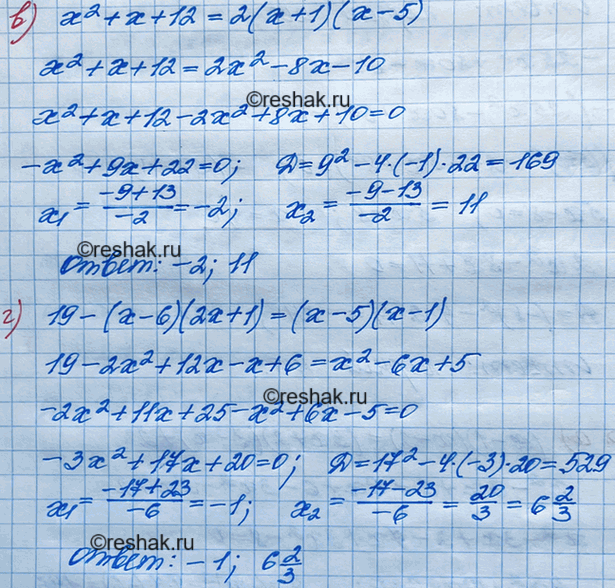 в) x² + x + 12 = 2(x+1)(x-5)
x² + x + 12 = 2x² - 8x - 10
©reshak.ru
x² + x + 12 - 2x² + 8x + 10 = 0
-x² + 9x + 22 = 0; D = 9² - 4·(-1)·22 = 169
x₁ = (-9+13)/-2 = -2; x₂ = (-9-13)/-2 = 11
©reshak.ru
Ответ: -2; 11
г) 19 - (x-6)(2x+1) = (x-5)(x-1)
19 - 2x² + 12x - x + 6 = x² - 6x + 5
©reshak.ru
-2x² + 11x + 25 - x² + 6x - 5 = 0
-3x² + 17x + 20 = 0; D = 17² - 4·(-3)·20 = 529
x₁ = (-17+23)/-6 = -1; x₂ = (-17-23)/-6 = 20/3 = 6 2/3
©reshak.ru
Ответ: -1; 6 2/3